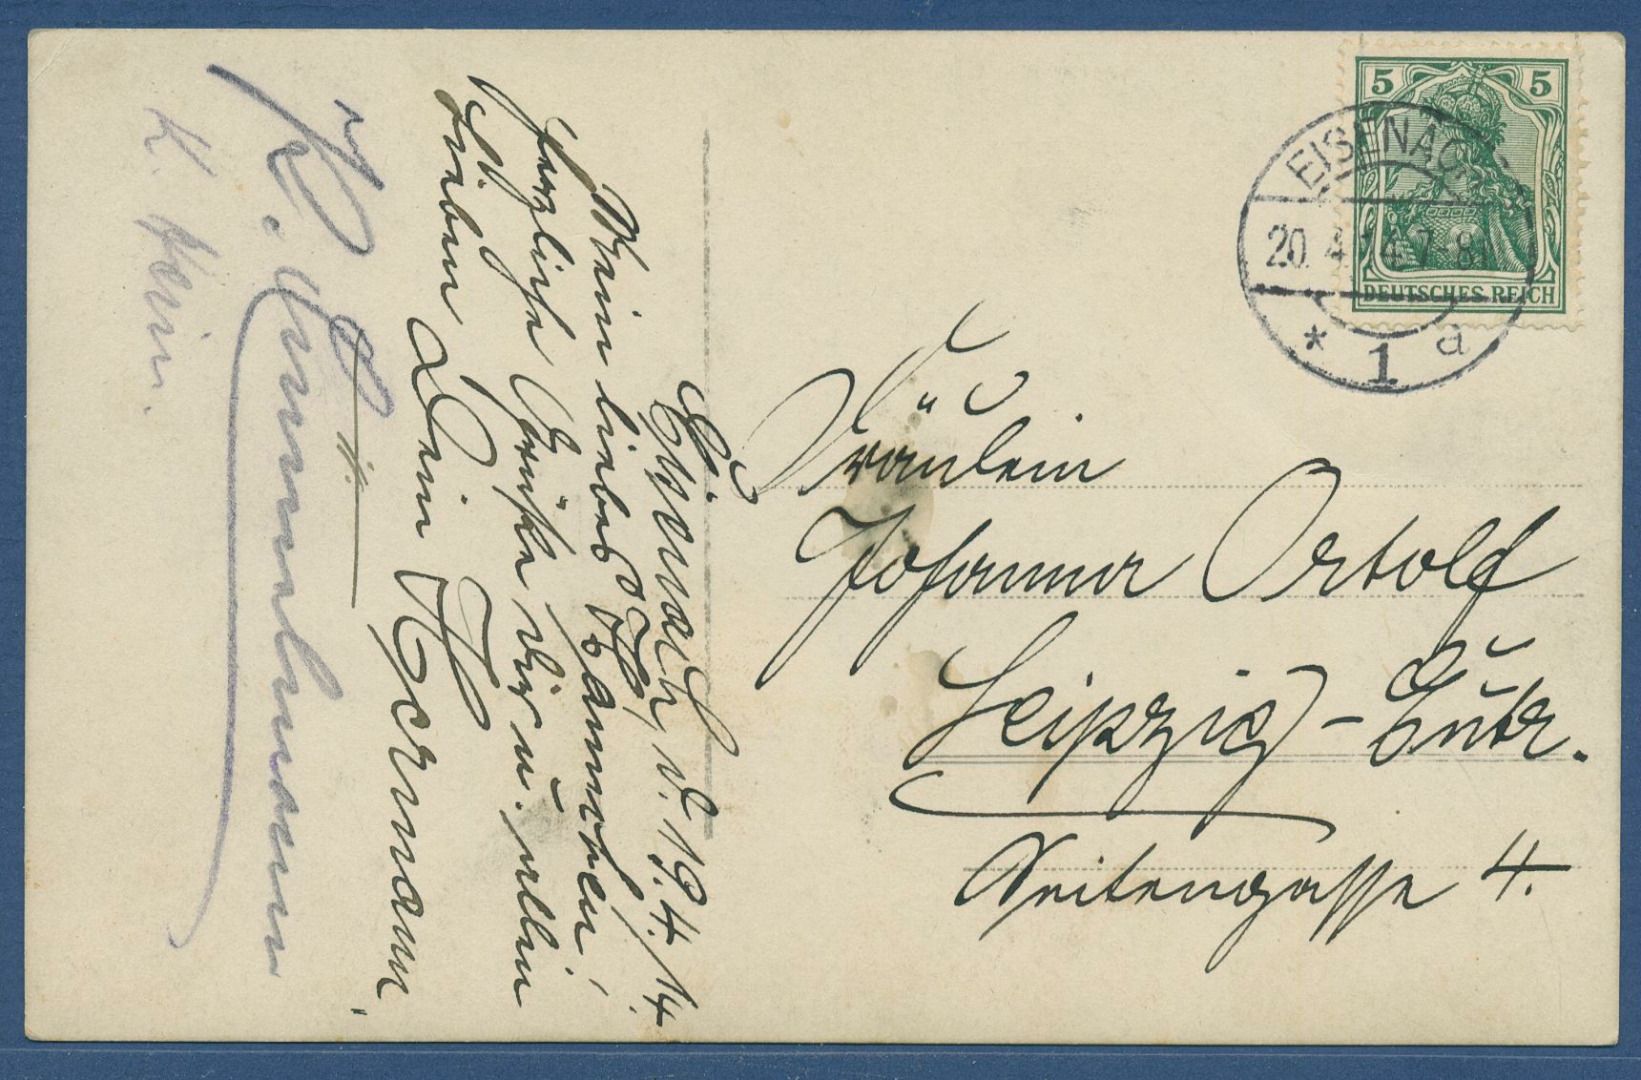 Eisenach, d. 19.4./14.
Mein liebes Hannchen!
Herzliche Grüße Dir u. allen
Lieben Dein Hermann.
K. Kunnelmann
K. Hein.
5 5
DEUTSCHES REICH
EISENACH
20.4.14.7-8
* 1 a
Fräulein
Johanna Ortold
Leipzig-Eutr.
Seitengasse 4.